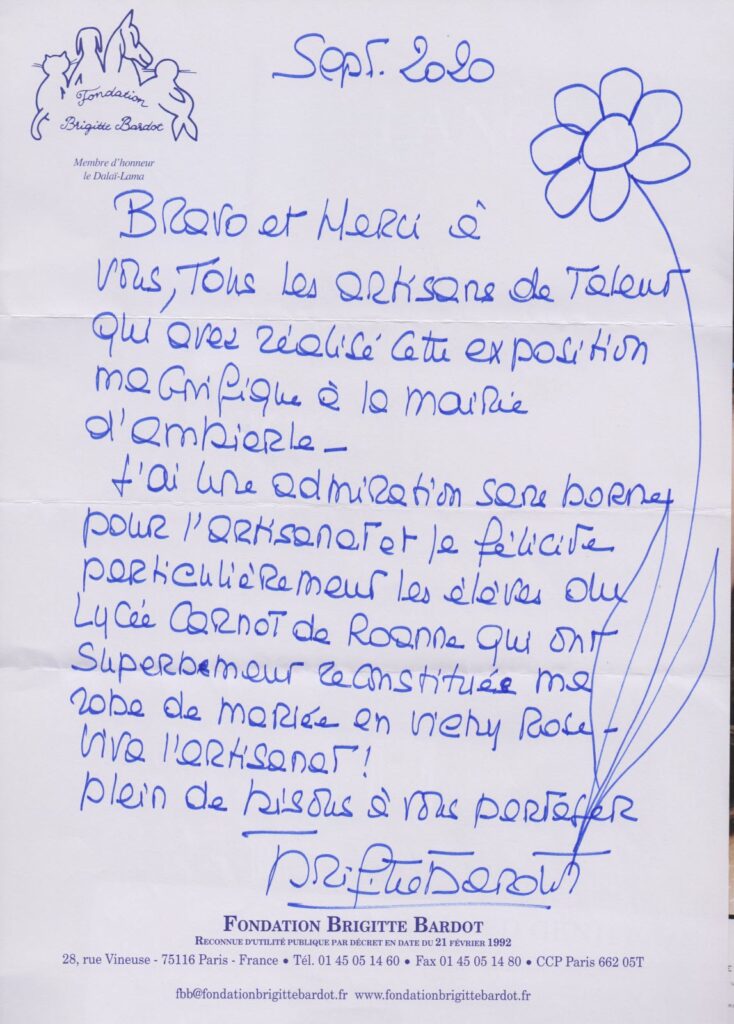 Fondation
Brigitte Bardot
Membre d'honneur
le Dalaï-Lama
Sept. 2020
Bravo et Merci à
vous, Tous les artisans de Talent
qui avez réalisé cette exposition
magnifique à la mairie
d'ambierle_
J'ai une admiration sans bornes
pour l'artisanat et je félicite
particulièrement les élèves du
Lycée Carnot de Roanne qui ont
superbement reconstituée ma
robe de mariée en vichy Rose_
Viva l'artisanat !
plein de bisous à vous partager
Brigitte Bardot
FONDATION BRIGITTE BARDOT
RECONNUE D'UTILITÉ PUBLIQUE PAR DÉCRET EN DATE DU 21 FÉVRIER 1992
28, rue Vineuse - 75116 Paris - France • Tél. 01 45 05 14 60 • Fax 01 45 05 14 80 • CCP Paris 662 05T
fbb@fondationbrigittebardot.fr www.fondationbrigittebardot.fr